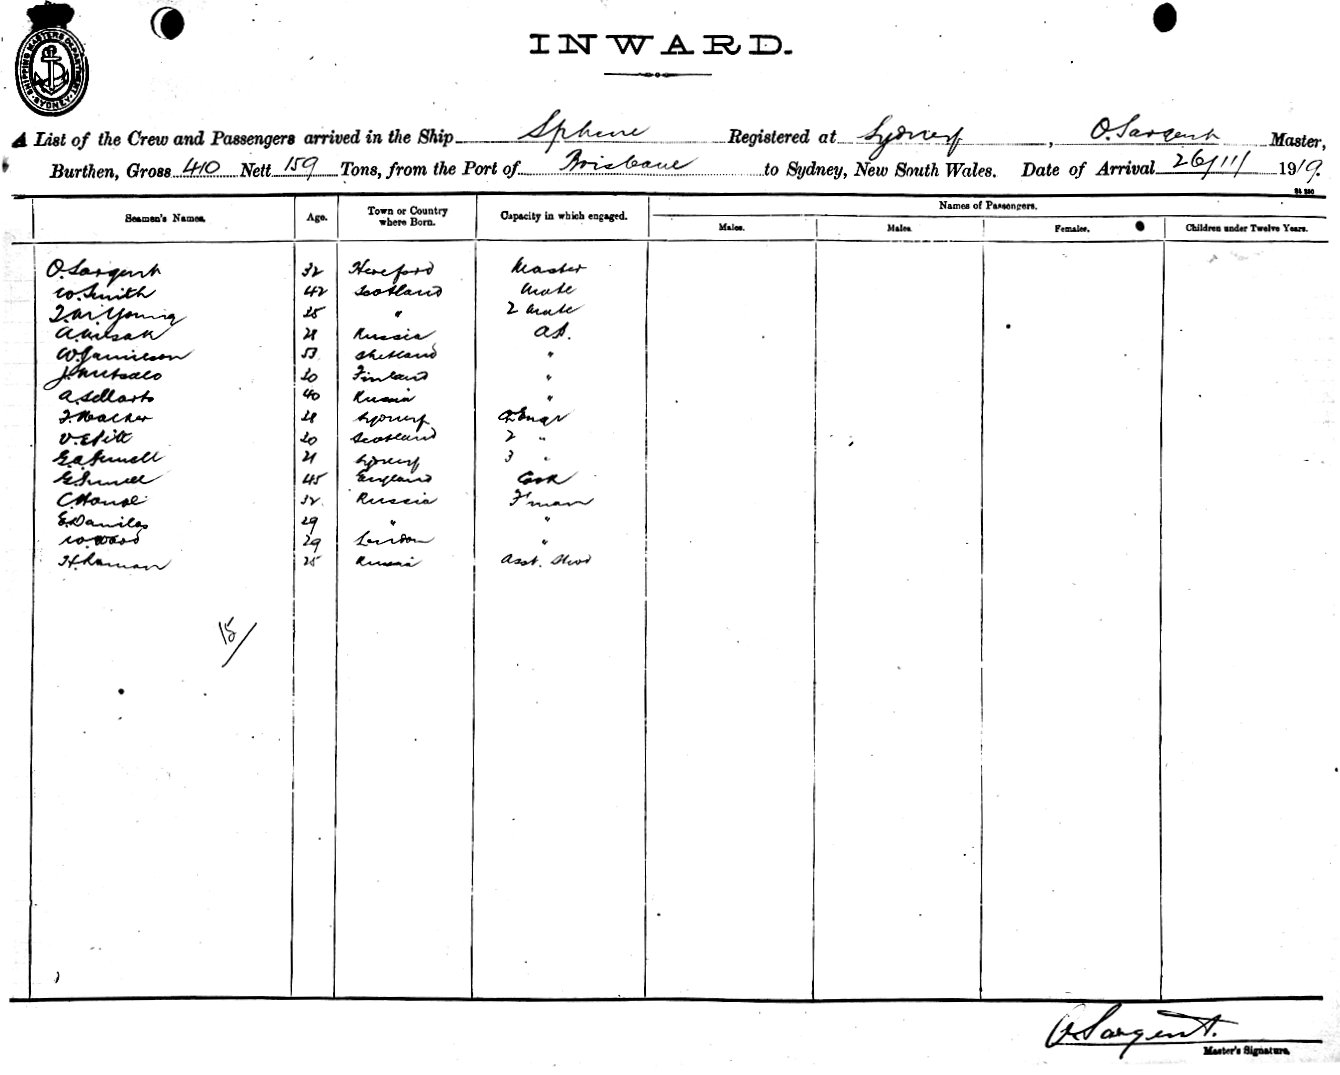 SHIPPING MASTERS DEPARTMENT SYDNEY
INWARD.
A List of the Crew and Passengers arrived in the Ship Sphene Registered at Sydney, O. Sargent Master,
Burthen, Gross 410 Nett 159 Tons, from the Port of Brisbane to Sydney, New South Wales. Date of Arrival 26/11/ 1919.
Seamen's Names. Age. Town or Country where Born. Capacity in which engaged. Names of Passengers.
Males. Males. Females. Children under Twelve Years.
O. Sargent 32 Hereford Master
W. Smith 42 Scotland Mate
Young 25 " 2 Mate
28 Russia AB.
W. Jamieson 53 Shetland "
30 Finland "
40 Russia "
28 Sydney Engr
20 Scotland 2 "
21 Sydney 3 "
45 England Cook
32 Russia F'man
E. Daniles 29 " "
W. Wood 29 London "
25 Russia Asst. Stwd
15/
O Sargent.
Master's Signature.